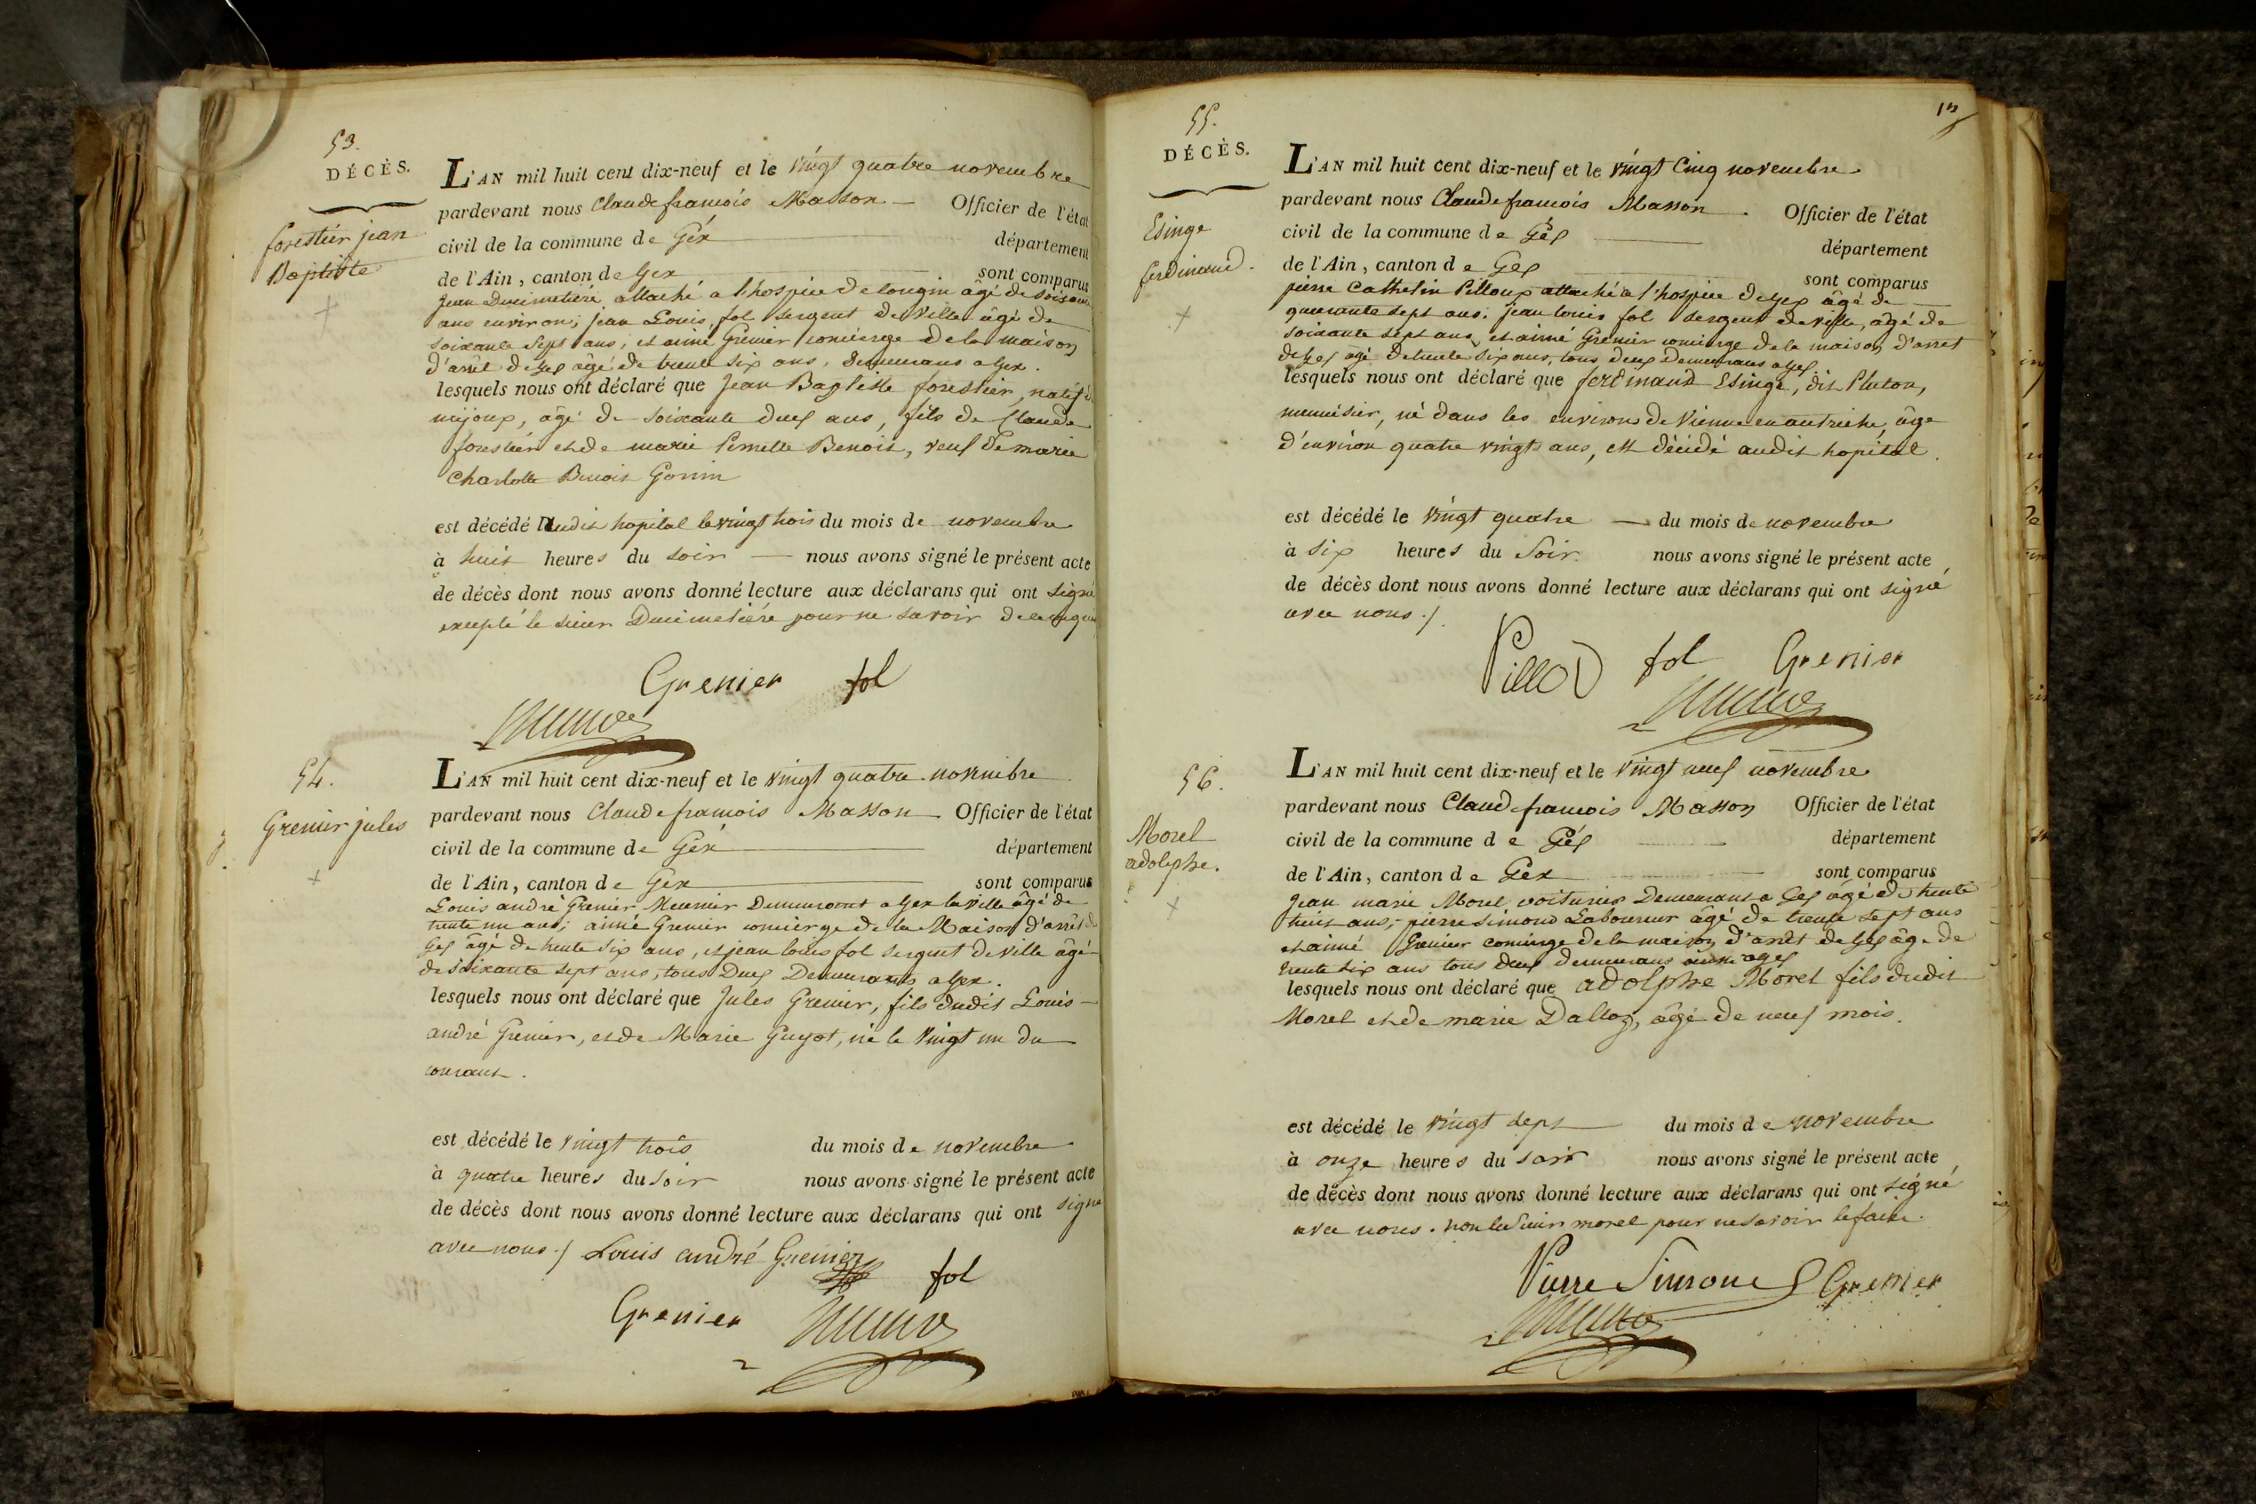 53.
DÉCÈS.
forestier jean
Baptiste
L'AN mil huit cent dix-neuf et le vingt quatre novembre
pardevant nous Claude françois Masson Officier de l'état
civil de la commune de Géx département
de l'Ain, canton de Gex sont comparus
Jean Ducimetière, attaché a l'hospice de tougin âgé de soixante
ans environ; jean Louis fol sergent de ville âgé de
soixante sept ans, et aimé Grenier concierge de la maison
d'arrêt de Gex âgé de trente six ans, demeurans a Gex.
lesquels nous ont déclaré que Jean Baptiste forestier, natif de
mijoux, âgé de soixante deux ans, fils de Claude
forestier et de marie Pernette Benoit, veuf de marie
charlotte Benoit Gonin
est décédé audit hopital le vingt trois du mois de novembre
à huit heures du soir nous avons signé le présent acte
de décès dont nous avons donné lecture aux déclarans qui ont signé
excepté le sieur Ducimetière pour ne savoir de ce requis
Grenier fol
54.
Grenier jules
L'AN mil huit cent dix-neuf et le vingt quatre novembre
pardevant nous Claude françois Masson Officier de l'état
civil de la commune de Géx département
de l'Ain, canton de Gex sont comparus
Louis andré Grenier Meunier Demeurant a Gex la ville âgé de
trente un ans; aimé Grenier concierge de la Maison d'arrêt de
Gex âgé de trente six ans, et jean louis fol sergent de ville âgé
de soixante sept ans, tous Deux Demeurants a Gex.
lesquels nous ont déclaré que Jules Grenier, fils dudit Louis
andré Grenier, et de Marie Guyot, né le vingt un du
courant.
est décédé le vingt trois du mois de novembre
à quatre heures du soir nous avons signé le présent acte
de décès dont nous avons donné lecture aux déclarans qui ont signé
avec nous./ Louis andré Grenier fol
Grenier
55.
DÉCÈS.
Esinge
ferdinand.
L'AN mil huit cent dix-neuf et le vingt Cinq novembre
pardevant nous Claude françois Masson Officier de l'état
civil de la commune de Géx département
de l'Ain, canton de Gex sont comparus
pierre Cathelin Pilloux attaché a l'hospice de Gex âgé de
quarante sept ans; jean louis fol sergent de ville, âgé de
soixante sept ans, et aimé Grenier concierge de la maison d'arrêt
de Gex âgé de trente six ans, tous deux demeurans a Gex
lesquels nous ont déclaré que ferdinand Esinge, dit Pluton,
menuisier, né dans les environs de Vienne en autriche, âge
d'environ quatre vingts ans, est décédé audit hopital.
est décédé le vingt quatre du mois de novembre
à six heures du Soir nous avons signé le présent acte
de décès dont nous avons donné lecture aux déclarans qui ont signé
avec nous./.
fol Grenier
56.
Morel
adolphe.
L'AN mil huit cent dix-neuf et le vingt neuf novembre
pardevant nous Claude françois Masson Officier de l'état
civil de la commune de Géx département
de l'Ain, canton de Géx sont comparus
Jean marie Morel voiturier Demeurant a Gex âgé de trente
huit ans; pierre Simond Laboureur âgé de trente sept ans
et aimé Grenier concierge de la maison d'arrêt de Gex âgé de
trente six ans tous deux demeurans a Gex
lesquels nous ont déclaré que adolphe Morel fils dudit
Morel et de marie Dalloz, âgé de neuf mois.
est décédé le vingt sept du mois de novembre
à onze heures du soir nous avons signé le présent acte
de décès dont nous avons donné lecture aux déclarans qui ont signé
avec nous. non le Sieur morel pour ne savoir le faire.
Pierre Simond Grenier